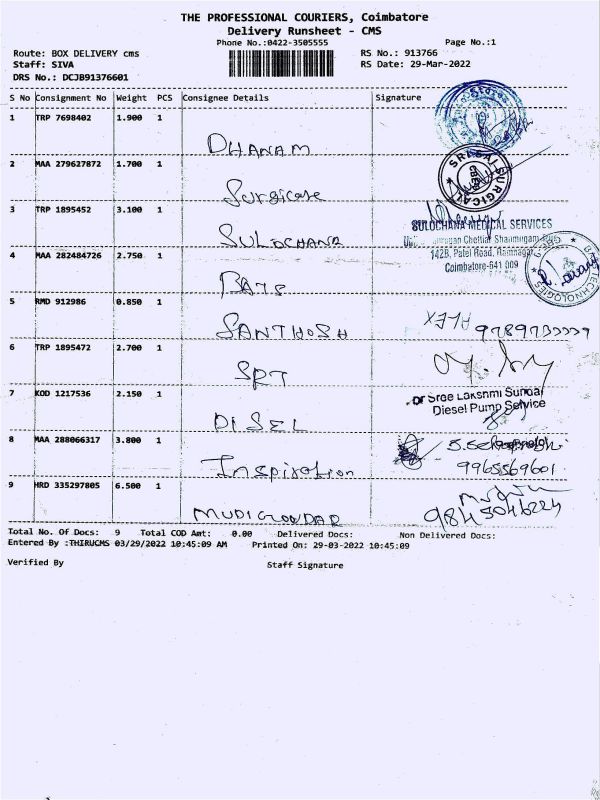 THE PROFESSIONAL COURIERS, Coimbatore
Delivery Runsheet - CMS
Phone No.:0422-3505555 Page No.:1
Route: BOX DELIVERY cms RS No.: 913766
Staff: SIVA RS Date: 29-Mar-2022
DRS No.: DCJB91376601
S No Consignment No Weight PCS Consignee Details Signature
1 TRP 7698402 1.900 1
DHANAM
2 MAA 279627872 1.700 1
Surgicare
SRI SAI SURGICAL
3 TRP 1895452 3.100 1
SULOCHANA
SULOCHANA MEDICAL SERVICES
4 MAA 282484726 2.750 1
142B, Patel Road, Ramnagar
Coimbatore-641 009
BATS
TECHNOLOGIES
5 RMD 912986 0.850 1
SANTHOSH
ALEX
6 TRP 1895472 2.700 1
SRT
7 KOD 1217536 2.150 1
or Sree Lakshmi Sundar
Diesel Pump Service
DISEL
8 MAA 288066317 3.800 1
Inspiration
9965569601
9 HRD 335297805 6.500 1
MUDIGOUDAR
9843046224
Total No. Of Docs: 9 Total COD Amt: 0.00 Delivered Docs: Non Delivered Docs:
Entered By :THIRUCMS 03/29/2022 10:45:09 AM Printed On: 29-03-2022 10:45:09
Verified By Staff Signature